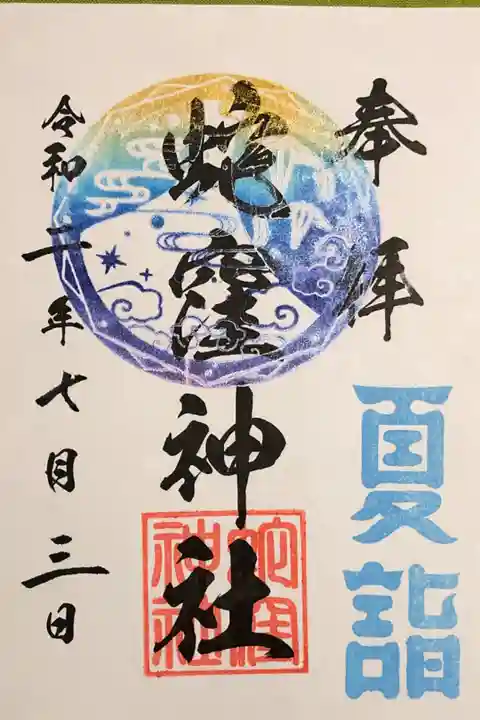 奉拝
夏詣
蛇窪神社
蛇窪
神社
令和二年七月三日